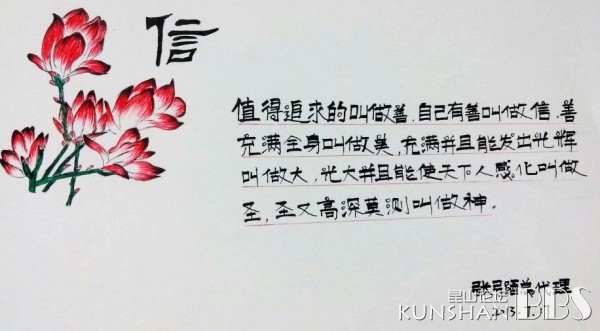 信
值得追求的叫做善,自己有善叫做信,善
充满全身叫做美,充满并且能发出光辉
叫做大,光大并且能使天下人感化叫做
圣,圣又高深莫测叫做神。
昆山论坛
KUNSHAN BBS